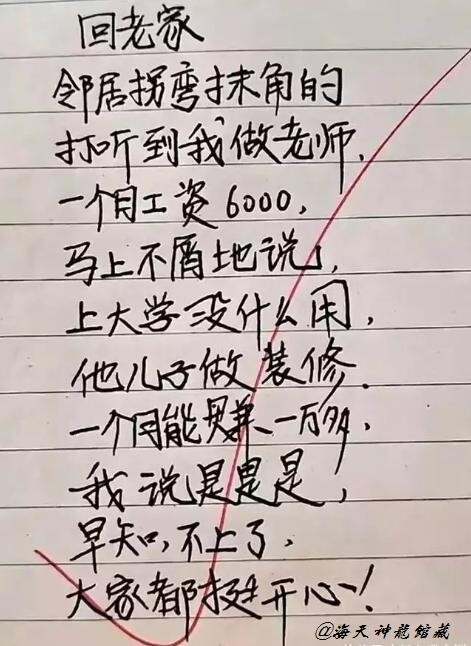 回老家
邻居拐弯抹角的
打听到我做老师,
一个月工资6000,
马上不屑地说,
上大学没什么用,
他儿子做装修.
一个月能赚一万多,
我说是是是,
早知,不上了,
大家都挺开心!
@海天神龍館藏